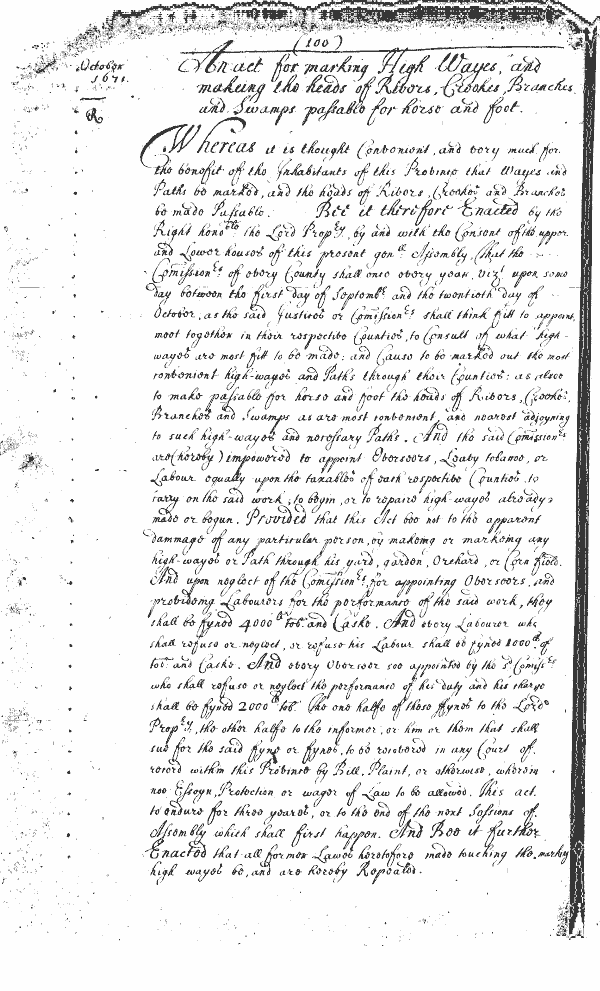 (100)
October
1671.
R
An act for marking High Wayes, and
makeing the heads of Rivers, Creekes, Branches
and Swamps passable for horse and foot.
Whereas it is thought Convenient, and very much for
the benefit of the Inhabitants of this Province that Wayes and
Paths be marked, and the heads of Rivers, Creekes and Branches
be made Passable. Bee it therefore Enacted by the
Right hono:ble the Lord Prop:ry, by and with the Consent of the upper
and Lower houses of this present gen:ll Assembly, That the
Comission:rs of every County shall once every year, viz:t upon some
day between the first day of Septemb:r and the twentieth day of
October, as the said Justices or Comission:rs shall think fitt to appoint
meet together in their respective Counties, to Consult of what high-
wayes are most fitt to be made: and Cause to be marked out the most
convenient high-wayes and Paths through their Counties: as alsoe
to make passable for horse and foot the heads of Rivers, Creekes,
Branches and Swamps as are most convenient, and nearest adjoyning
to such high-wayes and necessary Paths. And the said Comission:rs
are (hereby) impowered to appoint Overseers, Leavy tobacco, or
Labour equally upon the taxables of each respective Counties, to
carry on the said work, to begin, or to repaire high-wayes already
made or begun. Provided that this Act bee not to the apparent
dammage of any particular person, by makeing or markeing any
high-wayes or Path through his yard, garden, Orchard, or Corn field.
And upon neglect of the Comission:rs, for appointing Overseers, and
provideing Labourers for the performance of the said work, they
shall be fyned 4000 lb tob: and Caske. And every Labourer who
shall refuse or neglect, or refuse his Labour shall be fyned 1000 lb of
tob: and Caske. And every Overseer soe appointed by the s:d Comiss:rs
who shall refuse or neglect the performance of his duty and his charge
shall be fyned 2000 lb tob: The one halfe of these ffynes to the Lord
Prop:ry, the other halfe to the informer, or him or them that shall
sue for the said fyne or fynes, to be recovered in any Court of
record within this Province by Bill, Plaint, or otherwise, wherein
noe Essoyn, Protection or wager of Law to be allowed. This act
to endure for three yeares, or to the end of the next Sessions of
Assembly which shall first happen. And Bee it further
Enacted that all former Lawes heretofore made touching the marking
high wayes be, and are hereby Repealed.